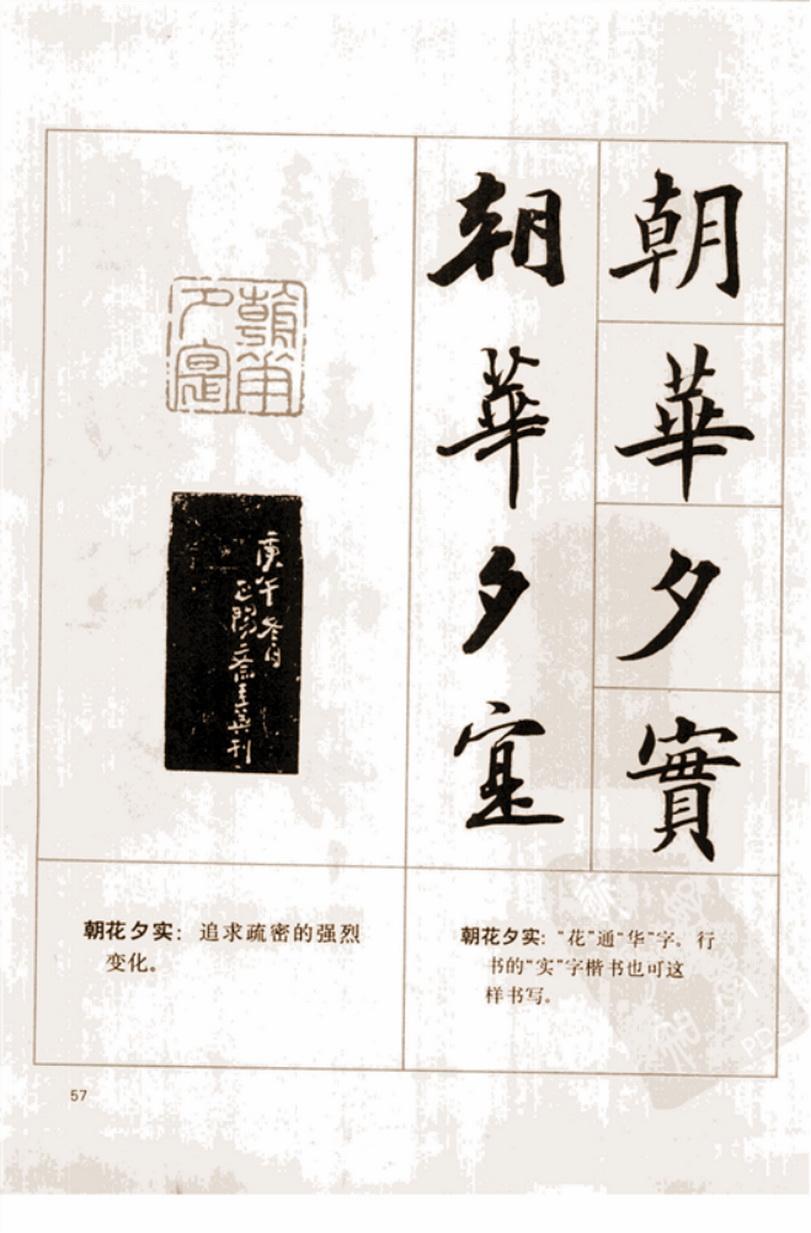 朝
華
夕
實
朝
華
夕
寔
朝華
夕寔
庚午冬月
正陽齋王異刊
朝花夕实：追求疏密的强烈
变化。
朝花夕实："花"通"华"字。行
书的"实"字楷书也可这
样书写。
57
PDG